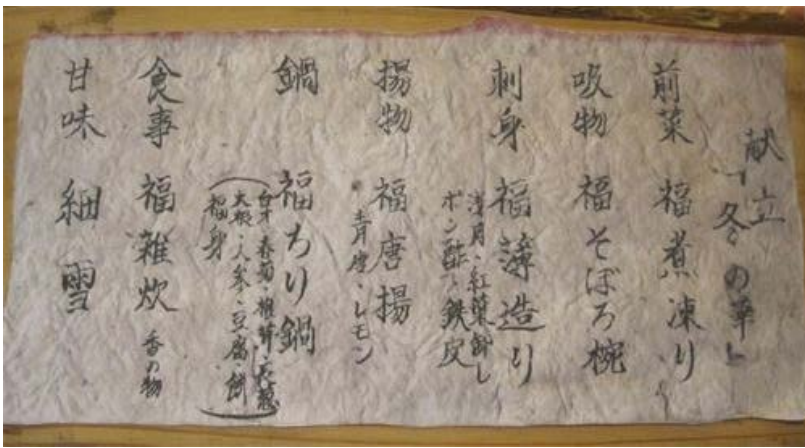 献立
「冬の華」
前菜 福煮凍り
吸物 福そぼろ椀
刺身 福薄造り
浅月・紅葉卸し
ポン酢・鉄皮
揚物 福唐揚
・青唐・レモン
鍋 福ちり鍋
(白才・春菊・椎茸・長葱
大根・人参・豆腐・餅
福身)
食事 福雑炊 香の物
甘味 細雪